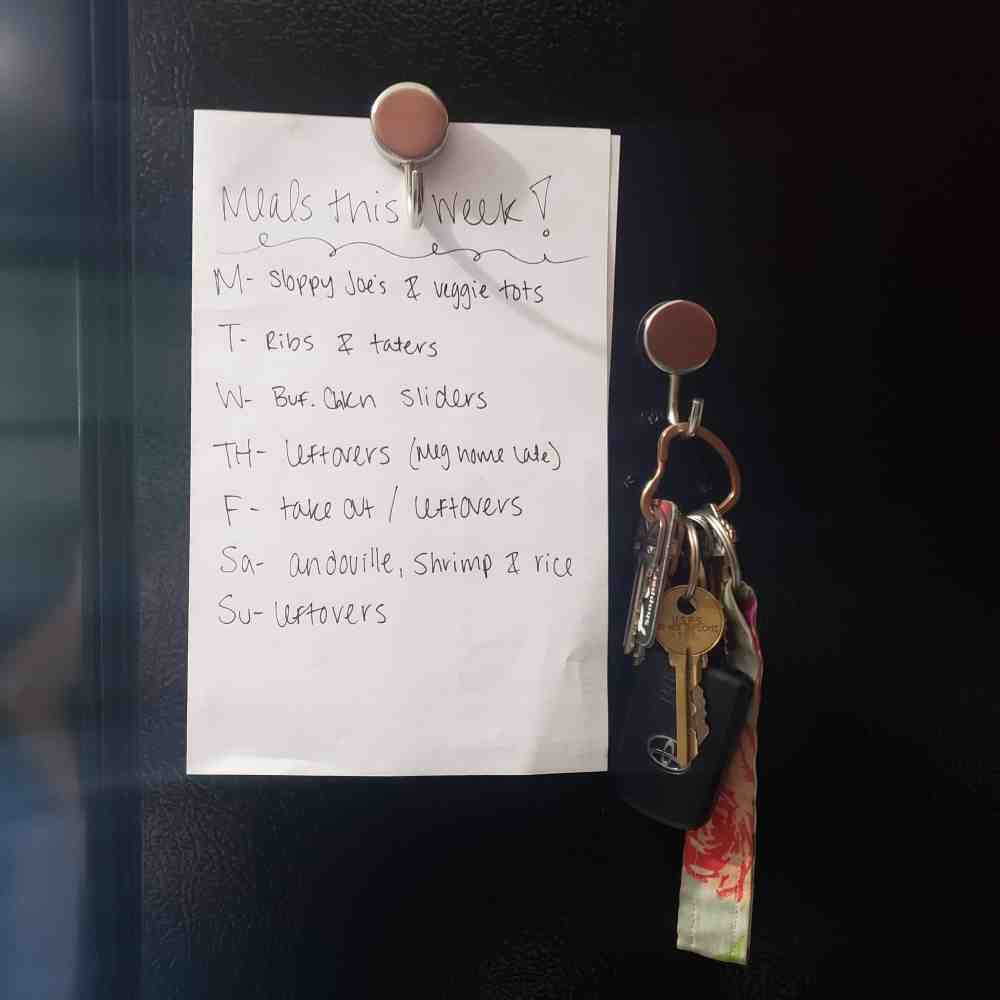 Meals this week!
M- Sloppy Joe's & veggie tots
T- Ribs & taters
W- Buf. Chkn sliders
TH- leftovers (Meg home late)
F- take out / leftovers
Sa- andouille, shrimp & rice
Su- leftovers
Shopper
U.S.P.S.